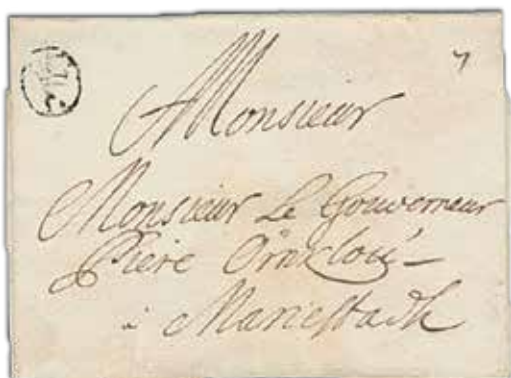 Monsieur
Monsieur Le Gouverneur
Piere Örnkloú
à Mariestadh